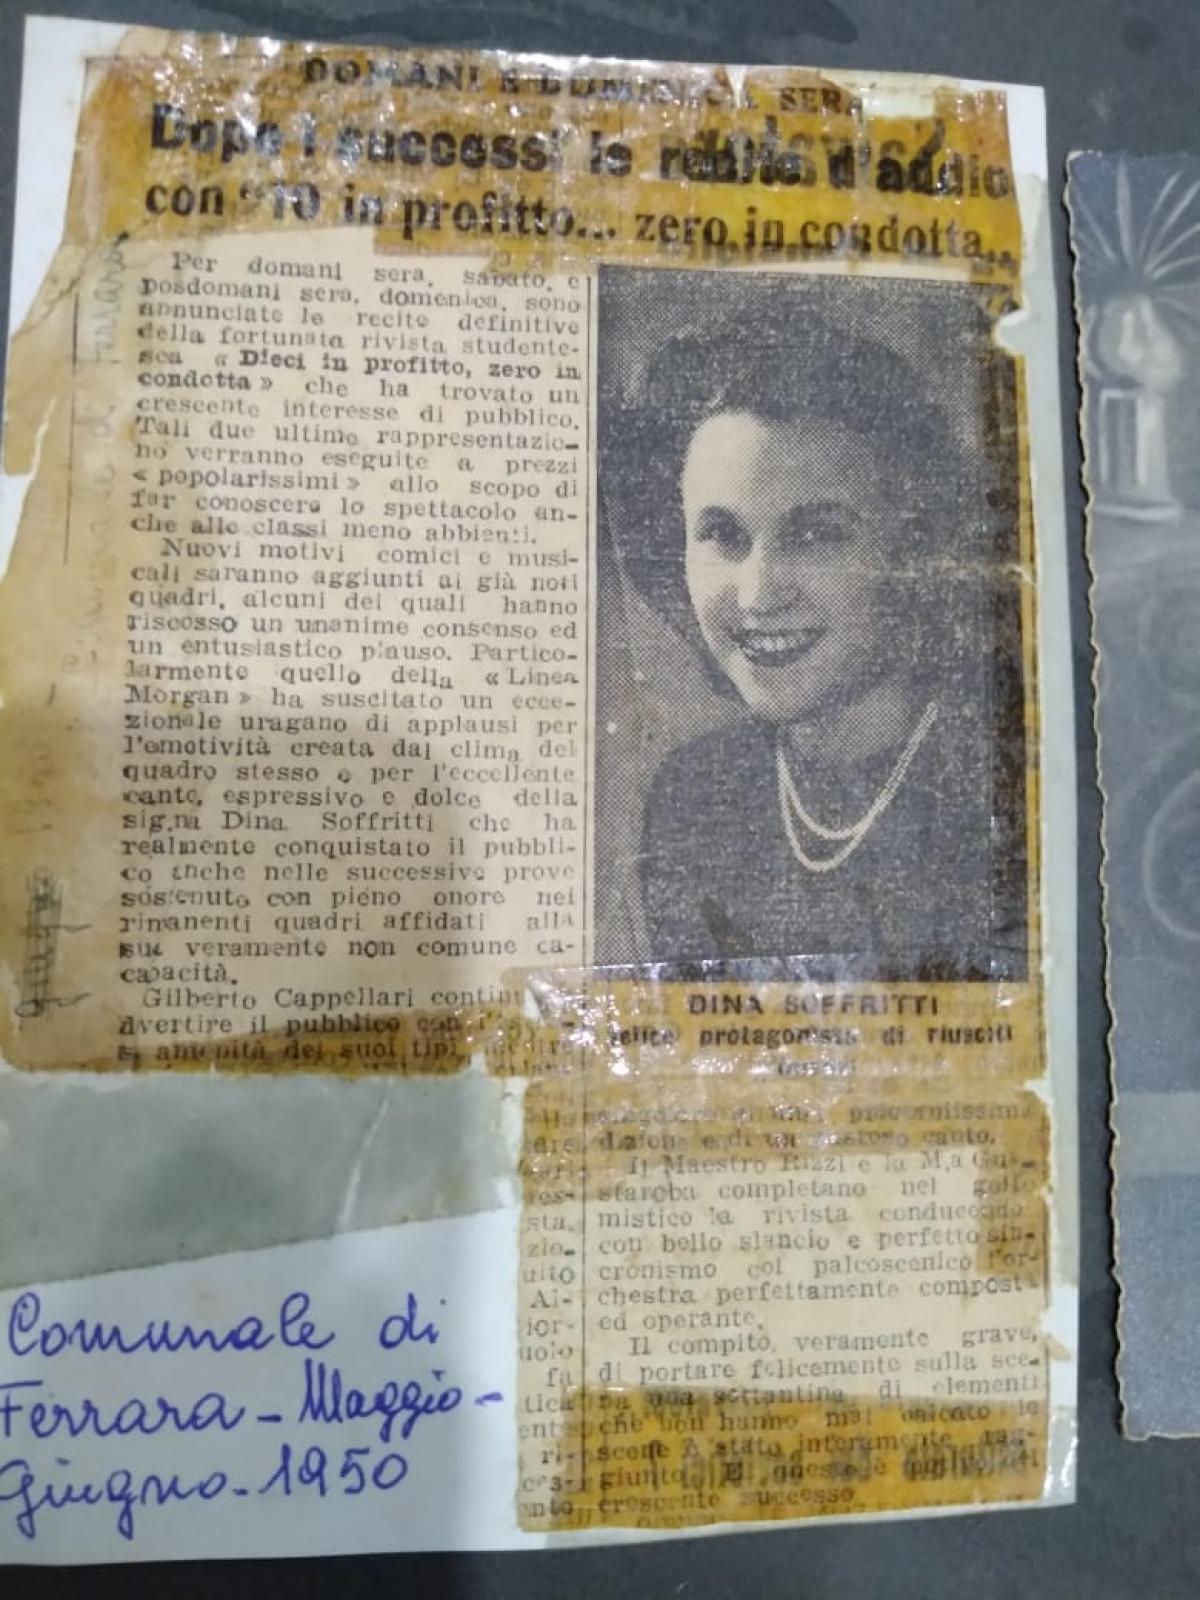 DOMANI E DOMENICA SERA
Dopo i successi le recite d'addio
con "10 in profitto... zero in condotta..
Per domani sera, sabato, e
posdomani sera, domenica, sono
annunciate le recite definitive
della fortunata rivista studente-
sca « Dieci in profitto, zero in
condotta » che ha trovato un
crescente interesse di pubblico.
Tali due ultime rappresentazio-
ni verranno eseguite a prezzi
« popolarissimi » allo scopo di
far conoscere lo spettacolo an-
che alle classi meno abbienti.
Nuovi motivi comici e musi-
cali saranno aggiunti ai già noti
quadri, alcuni dei quali hanno
riscosso un unanime consenso ed
un entusiastico plauso. Partico-
larmente quello della « Linea
Morgan » ha suscitato un ecce-
zionale uragano di applausi per
l'emotività creata dal clima del
quadro stesso e per l'eccellente
canto, espressivo e dolce della
sig.na Dina Soffritti che ha
realmente conquistato il pubbli-
co anche nelle successive prove
sostenuto con pieno onore nei
rimanenti quadri affidati alla
sua veramente non comune ca-
capacità.
Gilberto Cappellari
divertire il pubblico con
amenità dei suoi tipi,
DINA SOFFRITTI
felice protagonista di riusciti
quadri
dizione e di un canto.
Il Maestro Rizzi e la M.a Gu-
staroba completano nel golfo
mistico la rivista conducendo
con bello slancio e perfetto sin-
cronismo col palcoscenico l'or-
chestra perfettamente composta
ed operante.
Il compito, veramente grave,
di portare felicemente sulla sce-
na una settantina di elementi
che non hanno mai calcato le
scene è stato interamente rag-
giunto. E questo è
crescente successo
sta.
zio-
uito
Ai-
ior-
uolo
fa
tica
ente
ri-
ces-
ento
Comunale di
Ferrara - Maggio -
Giugno - 1950